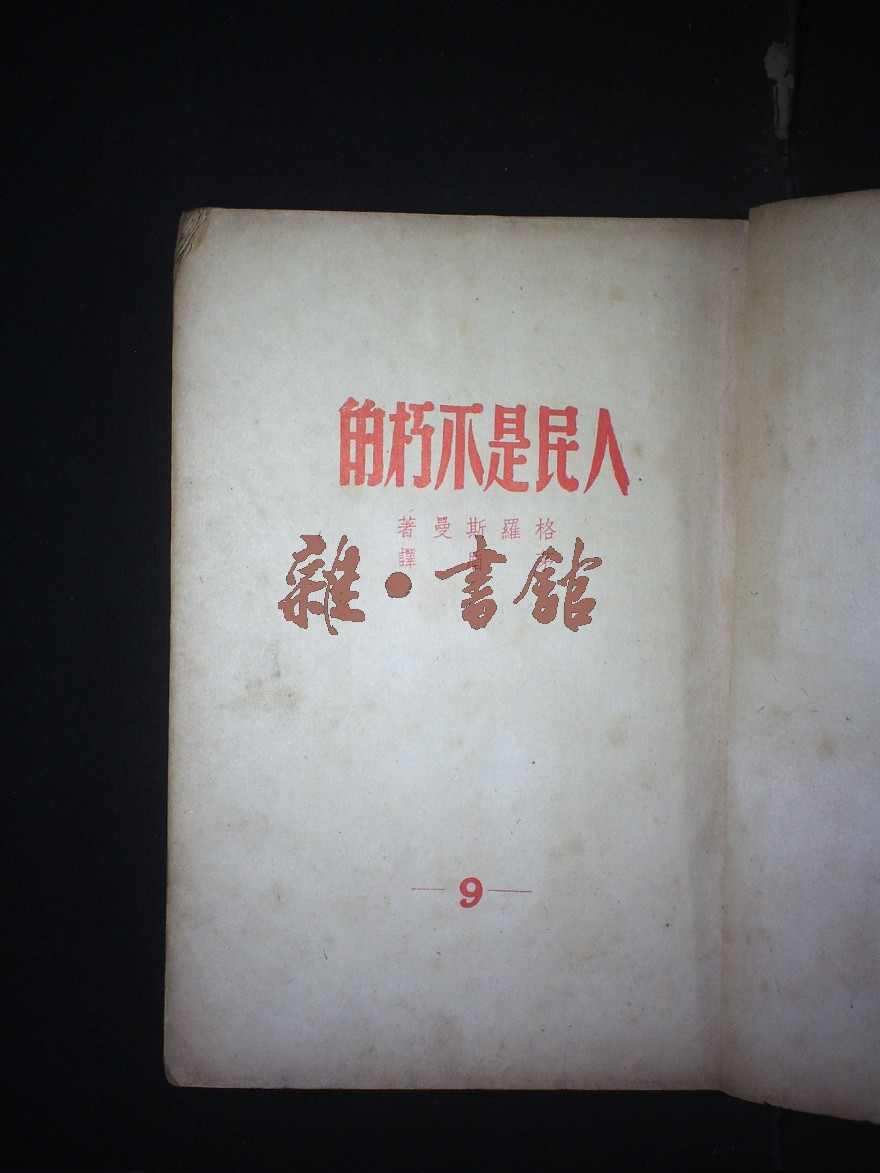 人民是不朽的
格羅斯曼著
盾譯
雜·書館
9